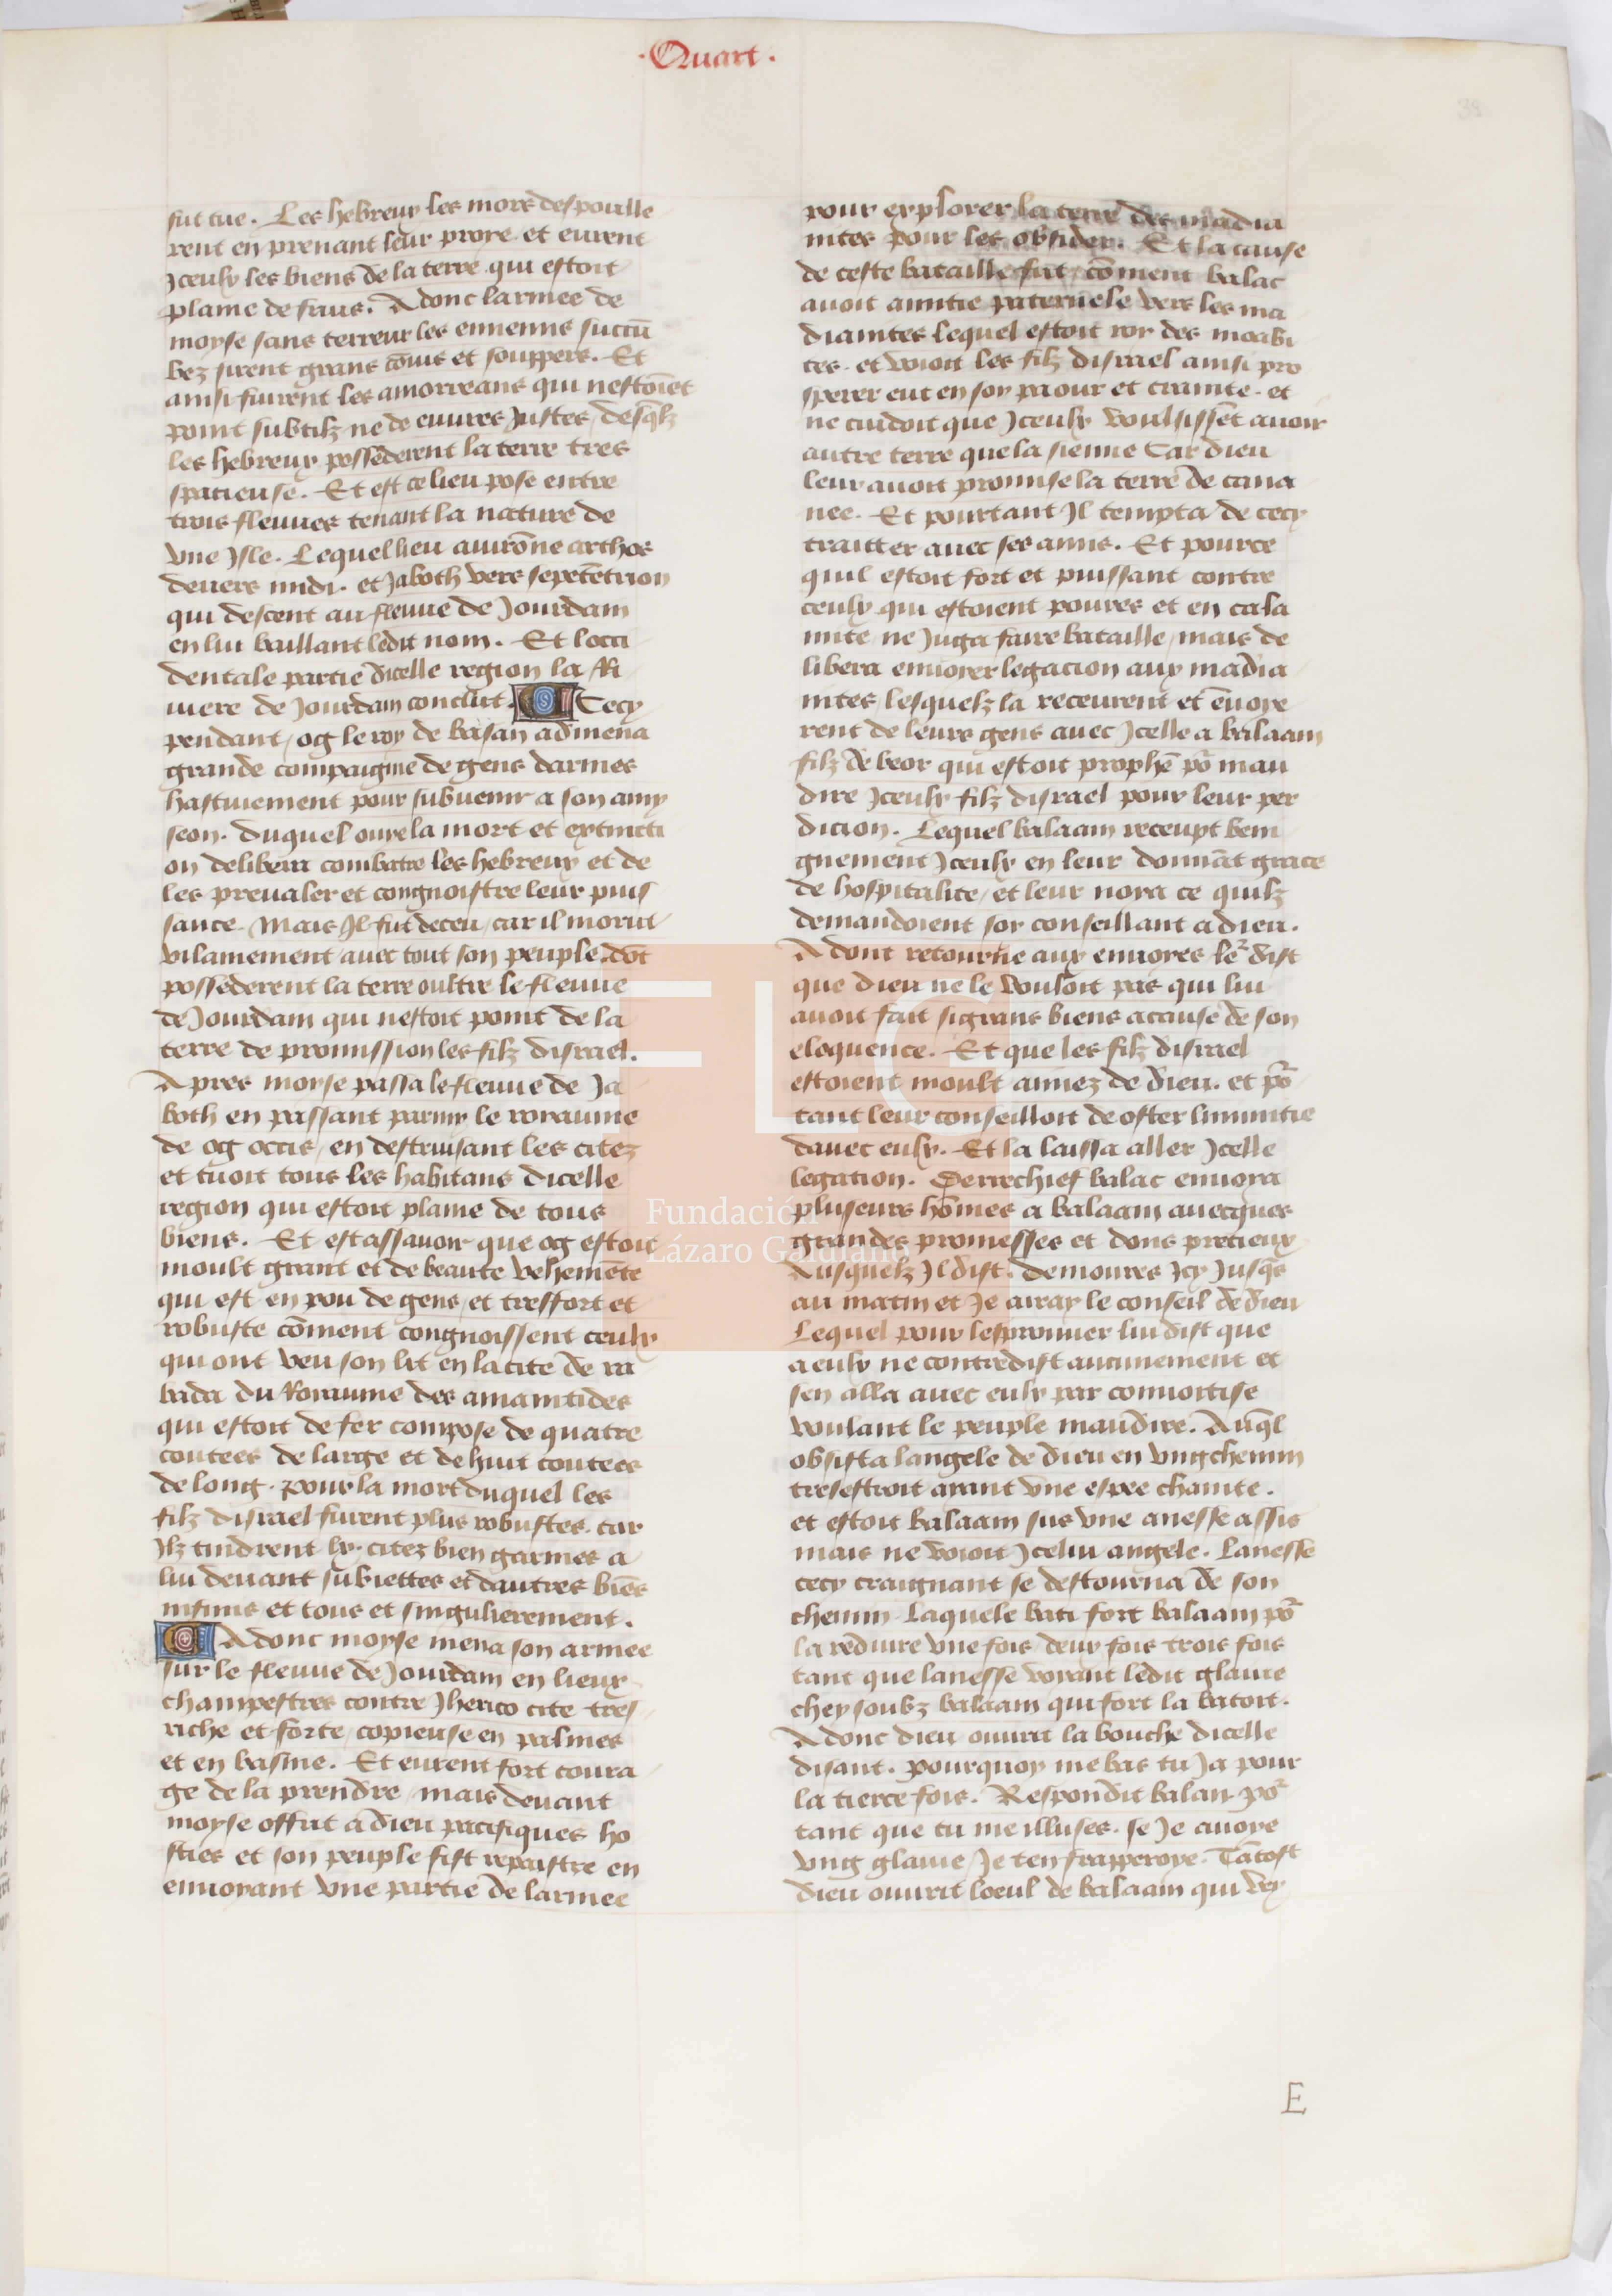 ·Quart·
fut tue. Les hebreux les mors despoulle
rent en prenant leur proye et eurent
Jceulx les biens de la terre qui estoit
plaine de frais. Adonc larmee de
moyse sans terreur les ennemis succū
bez firent grans cōuis et souppers. Et
ainsi fuirent les amorreans qui nestoiēt
point subtilz ne de euures Justes, desq̄lz
les hebreux possederent la terre tres
spacieuse. Et est ce lieu pose entre
trois fleuues tenant la nature de
vne Jsle. Lequel lieu auirōne arthos
deuers midi. et Jaboth vers septētrion
qui descent au fleuue de Jourdain
en lui baillant ledit nom. Et locci
dentale partie dicelle region la Ri
uiere de Jourdain conclut. Cecy
pendant, og le roy de basan admena
grande compaignie de gens darmes
hastiuement pour subuenir a son amy
seon. duquel ouye la mort et extincti
on delibera combatre les hebreux et de
les preualer et congnoistre leur puis
sance. Mais Jl fut deceu, car il morut
vilainement auec tout son peuple. dōt
possederent la terre oultre le fleuue
de Jourdain qui nestoit point de la
terre de promission les filz disrael.
Apres moyse passa le fleuue de Ja
both en passant parmy le royaume
de og occis, en destruisant les citez
et tuoit tous les habitans dicelle
region qui estoit plaine de tous
biens. Et est assauoir que og estoit
moult grant et de beaute vehemēte
qui est en pou de gens, et tresfort et
robuste cōment congnoissent ceulx
qui ont veu son lit en la cite de ra
bada du Royaume des amanitides
qui estoit de fer compose de quatre
coutees de large et de huit coutees
de long. pour la mort duquel les
filz disrael furent plus robustes. car
Jlz tindrent lx. citez bien garnies a
lui deuant subiettes et dautres biēs
infinis et tous et singulierement.
Adonc moyse mena son armee
sur le fleuue de Jourdain en lieux
champestres contre Jherico cite tres
riche et forte, copieuse en palmes
et en basme. Et eurent fort coura
ge de la prendre, mais deuant
moyse offrit a dieu pacifiques ho
sties et son peuple fist repaistre en
enuoyant vne partie de larmee
pour explorer la terre des madia
nites pour les obsider. Et la cause
de ceste bataille fut, cōment balac
auoit amitie paternele vers les ma
dianites lequel estoit roy des moabi
tes. et voioit les filz disrael ainsi pro
sperer eut en soy paour et crainte. et
ne cuidoit que Jceulx voulsissēt auoir
autre terre que la sienne Car dieu
leur auoit promise la terre de cana
nee. Et pourtant Jl tempta de cecy
traitter auec ses amis. Et pource
quil estoit fort et puissant contre
ceulx qui estoient poures et en cala
mite, ne Juga faire bataille, mais de
libera enuoyer legacion aux madia
nites, lesquelz la receurent et ēuoye
rent de leurs gens auec Jcelle a balaam
filz de beor qui estoit prophē po᷒ mau
dire Jceulx filz disrael pour leur per
dicion. Lequel balaam receupt beni
gnement Jceulx en leur donnāt grace
de hospitalite, et leur nora ce quilz
demandoient soy conseillant a dieu.
Adont retourne aux enuoyes le᷒ dist
que dieu ne le vouloit pas qui lui
auoit fait si grans biens a cause de son
eloquence. Et que les filz disrael
estoient moult aimez de dieu. et po᷒
tant leur conseilloit de oster linimitie
dauec eulx. Et la laissa aller Jcelle
legation. Derrechief balac enuoya
pluseurs hōmes a balaam auecques
grandes promesses et dons precieux
Ausquelz Jl dist. demoures Jcy Jusq̄s
au matin et Je auray le conseil de dieu
Lequel pour lesprouuer lui dist que
a eulx ne contredist aucunement et
sen alla auec eulx par conuoitise
voulant le peuple maudire. Auq̄l
obsista langele de dieu en vng chemin
tresestroit ayant vne espee chainte.
et estoit balaam sus vne anesse assis
mais ne voioit Jcelui angele. Lanesse
cecy craignant se destourna de son
chemin. Laquele bati fort balaam po᷒
la reduire vne fois, deux fois trois fois
tant que lanesse voyant ledit glaiue
chey soubz balaam qui fort la batoit.
Adonc dieu ouurit la bouche dicelle
disant. pourquoy me bas tu Ja pour
la tierce fois. Respondit balan po᷒
tant que tu me illuses. se Je auoye
vng glaiue, Je ten frapperoye. Tātost
dieu ouurit loeul de balaam qui vey
E
FLG
Fundación
Lázaro Galdiano